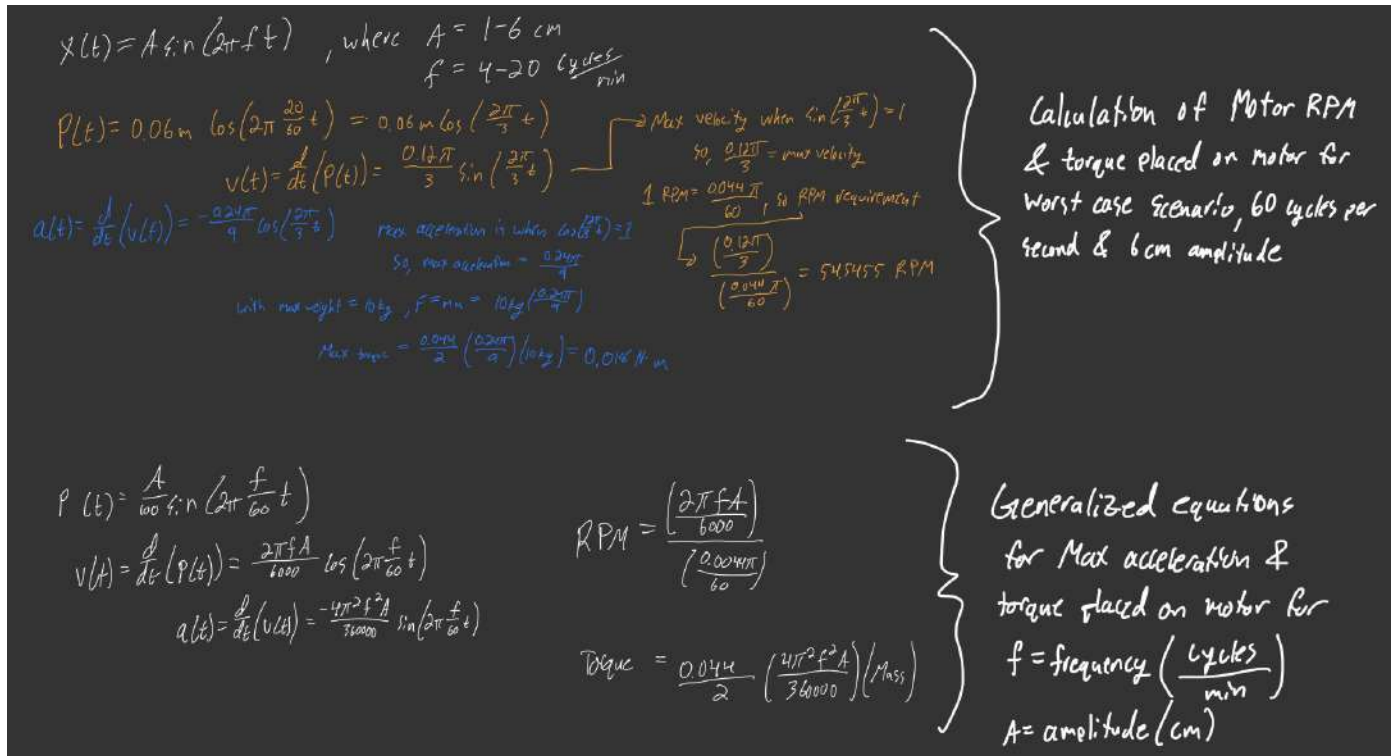 x(t) = A sin(2π f t) , where A = 1-6 cm
f = 4-20 cycles/min
P(t) = 0.06 m cos(2π 20/60 t) = 0.06 m cos(2π/3 t)
v(t) = d/dt (P(t)) = 0.12π/3 sin(2π/3 t)
→ Max velocity when sin(2π/3 t) = 1
so, 0.12π/3 = max velocity
1 RPM = 0.044π/60 , so RPM requirement
(0.12π/3) / (0.044π/60) = 545455 RPM
a(t) = d/dt (v(t)) = -0.24π/9 cos(2π/3 t)
max acceleration is when cos(2π/3 t) = 1
so, max acceleration = 0.24π/9
with max weight = 10kg , F = ma = 10kg (0.24π/9)
Max torque = 0.044/2 (0.24π/9) (10kg) = N·m
Calculation of Motor RPM
& torque placed on motor for
worst case scenario, 60 cycles per
second & 6 cm amplitude
P(t) = A/100 sin(2π f/60 t)
v(t) = d/dt (P(t)) = 2πfA/6000 cos(2π f/60 t)
a(t) = d/dt (v(t)) = -4π²f²A/360000 sin(2π f/60 t)
RPM = (2πfA/6000) / (0.0044π/60)
Torque = 0.044/2 (4π²f²A/360000) (Mass)
Generalized equations
for Max acceleration &
torque placed on motor for
f = frequency (cycles/min)
A = amplitude (cm)